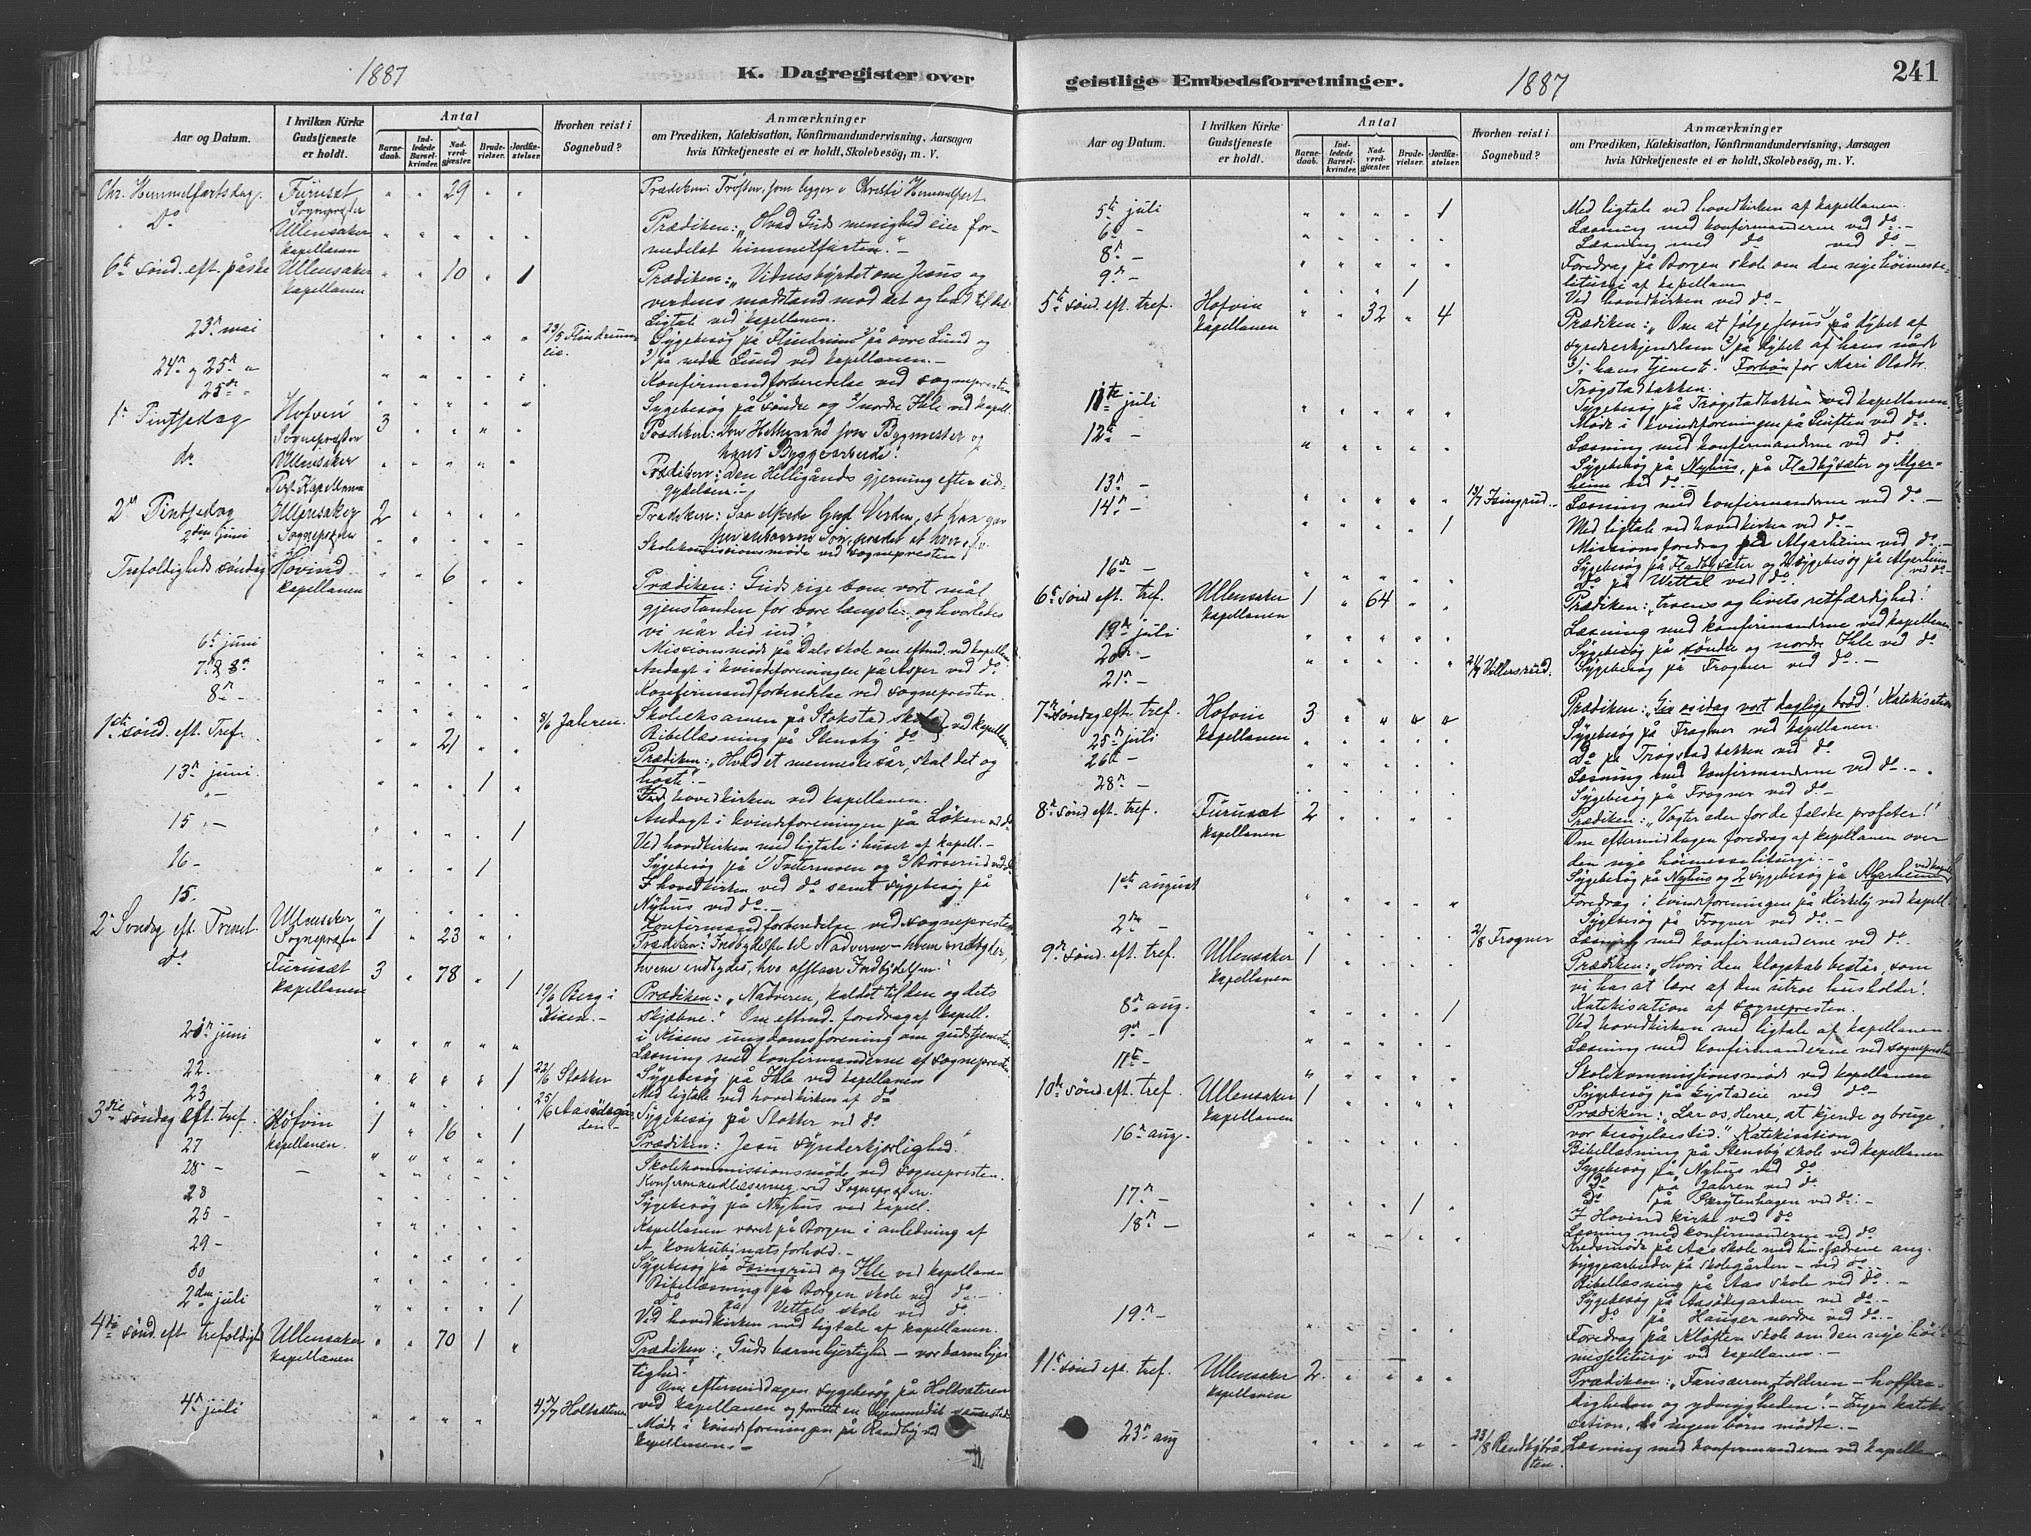 1887
K. Dagregister over
Aar og Datum.
I hvilken Kirke Gudstjeneste er holdt.
Antal
Barnedaab.
Indledede Barselkvinder.
Nadverdgjæster.
Brudevielser.
Jordfæstelser.
Hvorhen reist i Sognebud?
Anmærkninger
om Prædiken, Katekisation, Konfirmandundervisning, Aarsagen
hvis Kirketjeneste ei er holdt, Skolebesøg, m. V.
Chr. Himmelfartsdag. Furuset 29 Prædiken: Trøsten, som ligger i Christi Himmelfart
Sognepræsten
Do Ullensaker Prædiken: "Hvad Guds menighed eier for-
kapellanen medelst himmelfarten."
6te sønd. eft. påske Ullensaker 10 1 Prædiken: "Vidnesbyrdet om Jesus og
kapellanen verdens modstand mod det og
Ligtale ved kapellanen.
23n mai 23/5 Sygebesøg på øvre Lund og
på nedre Lund ved kapellanen.
24n og 25n Konfirmandforberedelse ved sognepresten
25de Sygebesøg på søndre og nordre Ihle ved kapell.
1n Pintsedag Hofvin 3 Prædiken: Den Helligaand som Bygmester og
Sognepræsten hans Byggearbeide!
do Ullensaker Prædiken: Den Helligånds gjerning efter
Kapellanen
2n Pintsedag Ullensaker 2 Prædiken: Saa elskede Gud Verden, at han gav
2den juni Sognepræsten Skolekommissionsmøde ved sognepresten
Trefoldigheds søndag Hovind 6 Prædiken: Guds rige som vort mål
kapellanen gjenstanden for vore længsler og hvorledes
vi når did ind."
6te juni Missionsmøde på Dals skole om eftmd. ved kapellan
7n & 8n Andagt i kvindeforeningen på Asper ved do
8n Konfirmandforberedelse ved sognepresten.
8/6 Jahren. Skoleeksamen på Stokstad skole ved kapellan
1ste sønd. eft. Tref. 21 Bibellæsning på Stensby do
Prædiken: "Hvad et menneske sår, skal det og
høste."
13n juni 1 Ved hovedkirken ved kapellanen.
Andagt i kvindeforeningen på Løken ved do
15 1 Ved hovedkirken med ligtale i huset af kapell.
16 1 Sygebesøg på
I hovedkirken ved do samt sygebesøg på
15. Nyhus ved do.
Konfirmandforberedelse ved sognepresten
2n Søndag eft. Trinit. Ullensaker 1 23 Prædiken: Indbydelse til Nadveren – hvem indbyder,
Sognepræsten hvem indbydes, hvo afslaar Indbydelsen!
do Furusæt 3 78 1 19/6 Berg i Prædiken: "Nadveren, kaldet til den og dets
kapellanen Kisen. skjæbne." Om eftmd. foredrag af kapell.
i Kisens ungdomsforening om gudstjenesten
21n juni Læsning med konfirmanderne af sognepresten
22. 1 22/6 Stokker Sygebesøg på Ihle ved kapellanen
23 Med ligtale ved hovedkirken af do
25/6 Aasødegården Sygebesøg på Stokker ved do
3die søndag eft. tref. Hofvin 1 16 1 Prædiken: "Jesu synderkjærlighed."
27 kapellanen. Skolekommissionsmøde ved sognepresten.
28 Konfirmandlæsning ved Sognepresten.
28 Sygebesøg på Nyhus ved kapell.
25 Kapellanen været på Borgen i anledning af
et konkubinatsforhold.
29 Sygebesøg på Isingrud og Ihle ved kapellanen
30 Bibellæsning på Borgen skole ved do
Do på Vettals skole ved do
2den juli 1 Ved hovedkirken med ligtale af kapellanen.
4de sønd. eft. trefoldigh. Ullensaker 70 1 Prædiken: "Guds barmhjertighed – vor barmhjer-
kapellanen tighed."
Om eftermiddagen sygebesøg på Holtsæteren
4n juli 4/7 Holtsæteren ved kapellanen og forrettet en
Møde i kvindeforeningen på Randby ved
kapellanen.
geistlige Embedsforretninger.
1887
241
Aar og Datum.
I hvilken Kirke Gudstjeneste er holdt.
Antal
Barnedaab.
Indledede Barselkvinder.
Nadverdgjæster.
Brudevielser.
Jordfæstelser.
Hvorhen reist i Sognebud?
Anmærkninger
om Prædiken, Katekisation, Konfirmandundervisning, Aarsagen
hvis Kirketjeneste ei er holdt, Skolebesøg, m. V.
5te juli 1 Med ligtale ved hovedkirken af kapellanen.
6te Læsning med konfirmanderne ved do
8n Læsning med do ved do
9n 1 Foredrag på Borgen skole om den nye høimesse-
liturgi af kapellanen
Ved hovedkirken ved do
5te sønd. eft. tref. Hofvin 32 4 Prædiken: "Om at følge Jesus på dybet af
kapellanen synderkjendelsen på dybet af hans nåde
i hans tjeneste." Forbøn for Mari Olsdtr.
Trøgstadbakken.
11te juli Sygebesøg på Trøgstadbakken ved kapellanen.
12te Møde i kvindeforeningen på ved do.
Læsning med konfirmanderne ved do
Sygebesøg på Nyhus, på Fladbysæter og Algar-
13n 13/7 Isingrud. heim ved do
14n 1 Læsning med konfirmanderne ved do
Med ligtale ved hovedkirken ved do
Missionsforedrag på Algarheim ved do
16de Sygebesøg på Fladbysæter og 2 sygebesøg på Algarheim ved do
do på Wettal ved do
6te sønd. eft. tref. Ullensaker 1 64 Prædiken: "troens og livets retfærdighed!
kapellanen Læsning med konfirmanderne ved kapellanen.
19n juli Sygebesøg på søndre og nordre Ihle ved do
20de 21/7 Villersrud. Sygebesøg på Frogner ved do
21n
7n søndag eft. tref. Hofvin 3 Prædiken: "Giv os idag vort daglige brød! Katekisation
25n juli kapellanen Sygebesøg på Frogner ved kapellanen.
26te Do på Trøgstadbakken ved do
28n Læsning med konfirmanderne ved do
Sygebesøg på Frogner ved do
8n sønd. eft. tref. Furusæt 2 Prædiken: "Vogter eder for de falske profeter!
kapellanen Om eftermiddagen foredrag af kapellanen over
den nye høimesseliturgi.
1ste august Sygebesøg på Nyhus og 2 sygebesøg på Algerheim ved kapell.
Foredrag i kvindeforeningen på Kirkeby ved kapell.
2n 2/8 Frogner Sygebesøg på Frogner ved do
Læsning med konfirmanderne ved do
9n sønd. eft. tref. Ullensaker 1 Prædiken: "Hvori den klogskab består, som
kapellanen vi has at lære af den utroe husholder!
8n aug. 1 Katekisation af sognepresten.
9n Ved hovedkirken med ligtale af kapellanen.
11te Læsning med konfirmanderne ved sognepresten
Skolekommissionsmøde ved kapellanen
Sygebesøg på ved do
10de sønd. eft. tref. Ullensaker 1 Prædiken: "Lær os, Herre, at kjende og bruge
kapellanen vor besøgelsestid." Katekisation
16n aug. Bibellæsning på Stensby skole ved kapellanen
Sygebesøg på Nyhus ved do
Do på Jahren ved do
17n 1 Do på Skrytenhagen ved do
18n I Hovind kirke ved do
Læsning med konfirmanderne ved do
Kredsmøde på Aas skole med husfædrene ang.
byggearbeider på skolegården – ved do
Bibellæsning på Aas skole ved do
Sygebesøg på Aasødegården ved do
19n do på Hauger nordre ved do
Foredrag på Kløften skole om den nye høi-
messeliturgi ved kapellanen.
11te sønd. eft. tref. Ullensaker 2 Prædiken: "Farisæeren, tolderen – hoffær-
kapellanen digheden og ydmygheden." – Ingen kateki-
sation, da ingen børn mødte.
23n aug 23/8 Randbybråten. Læsning med konfirmanderne ved kapellanen